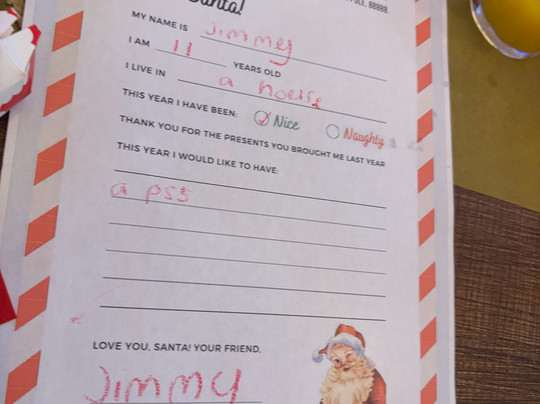 Santa!
88888.
MY NAME IS Jimmy
I AM 11 YEARS OLD
I LIVE IN a house
THIS YEAR I HAVE BEEN: Nice Naughty
THANK YOU FOR THE PRESENTS YOU BROUGHT ME LAST YEAR
THIS YEAR I WOULD LIKE TO HAVE:
a ps5
LOVE YOU, SANTA! YOUR FRIEND,
Jimmy